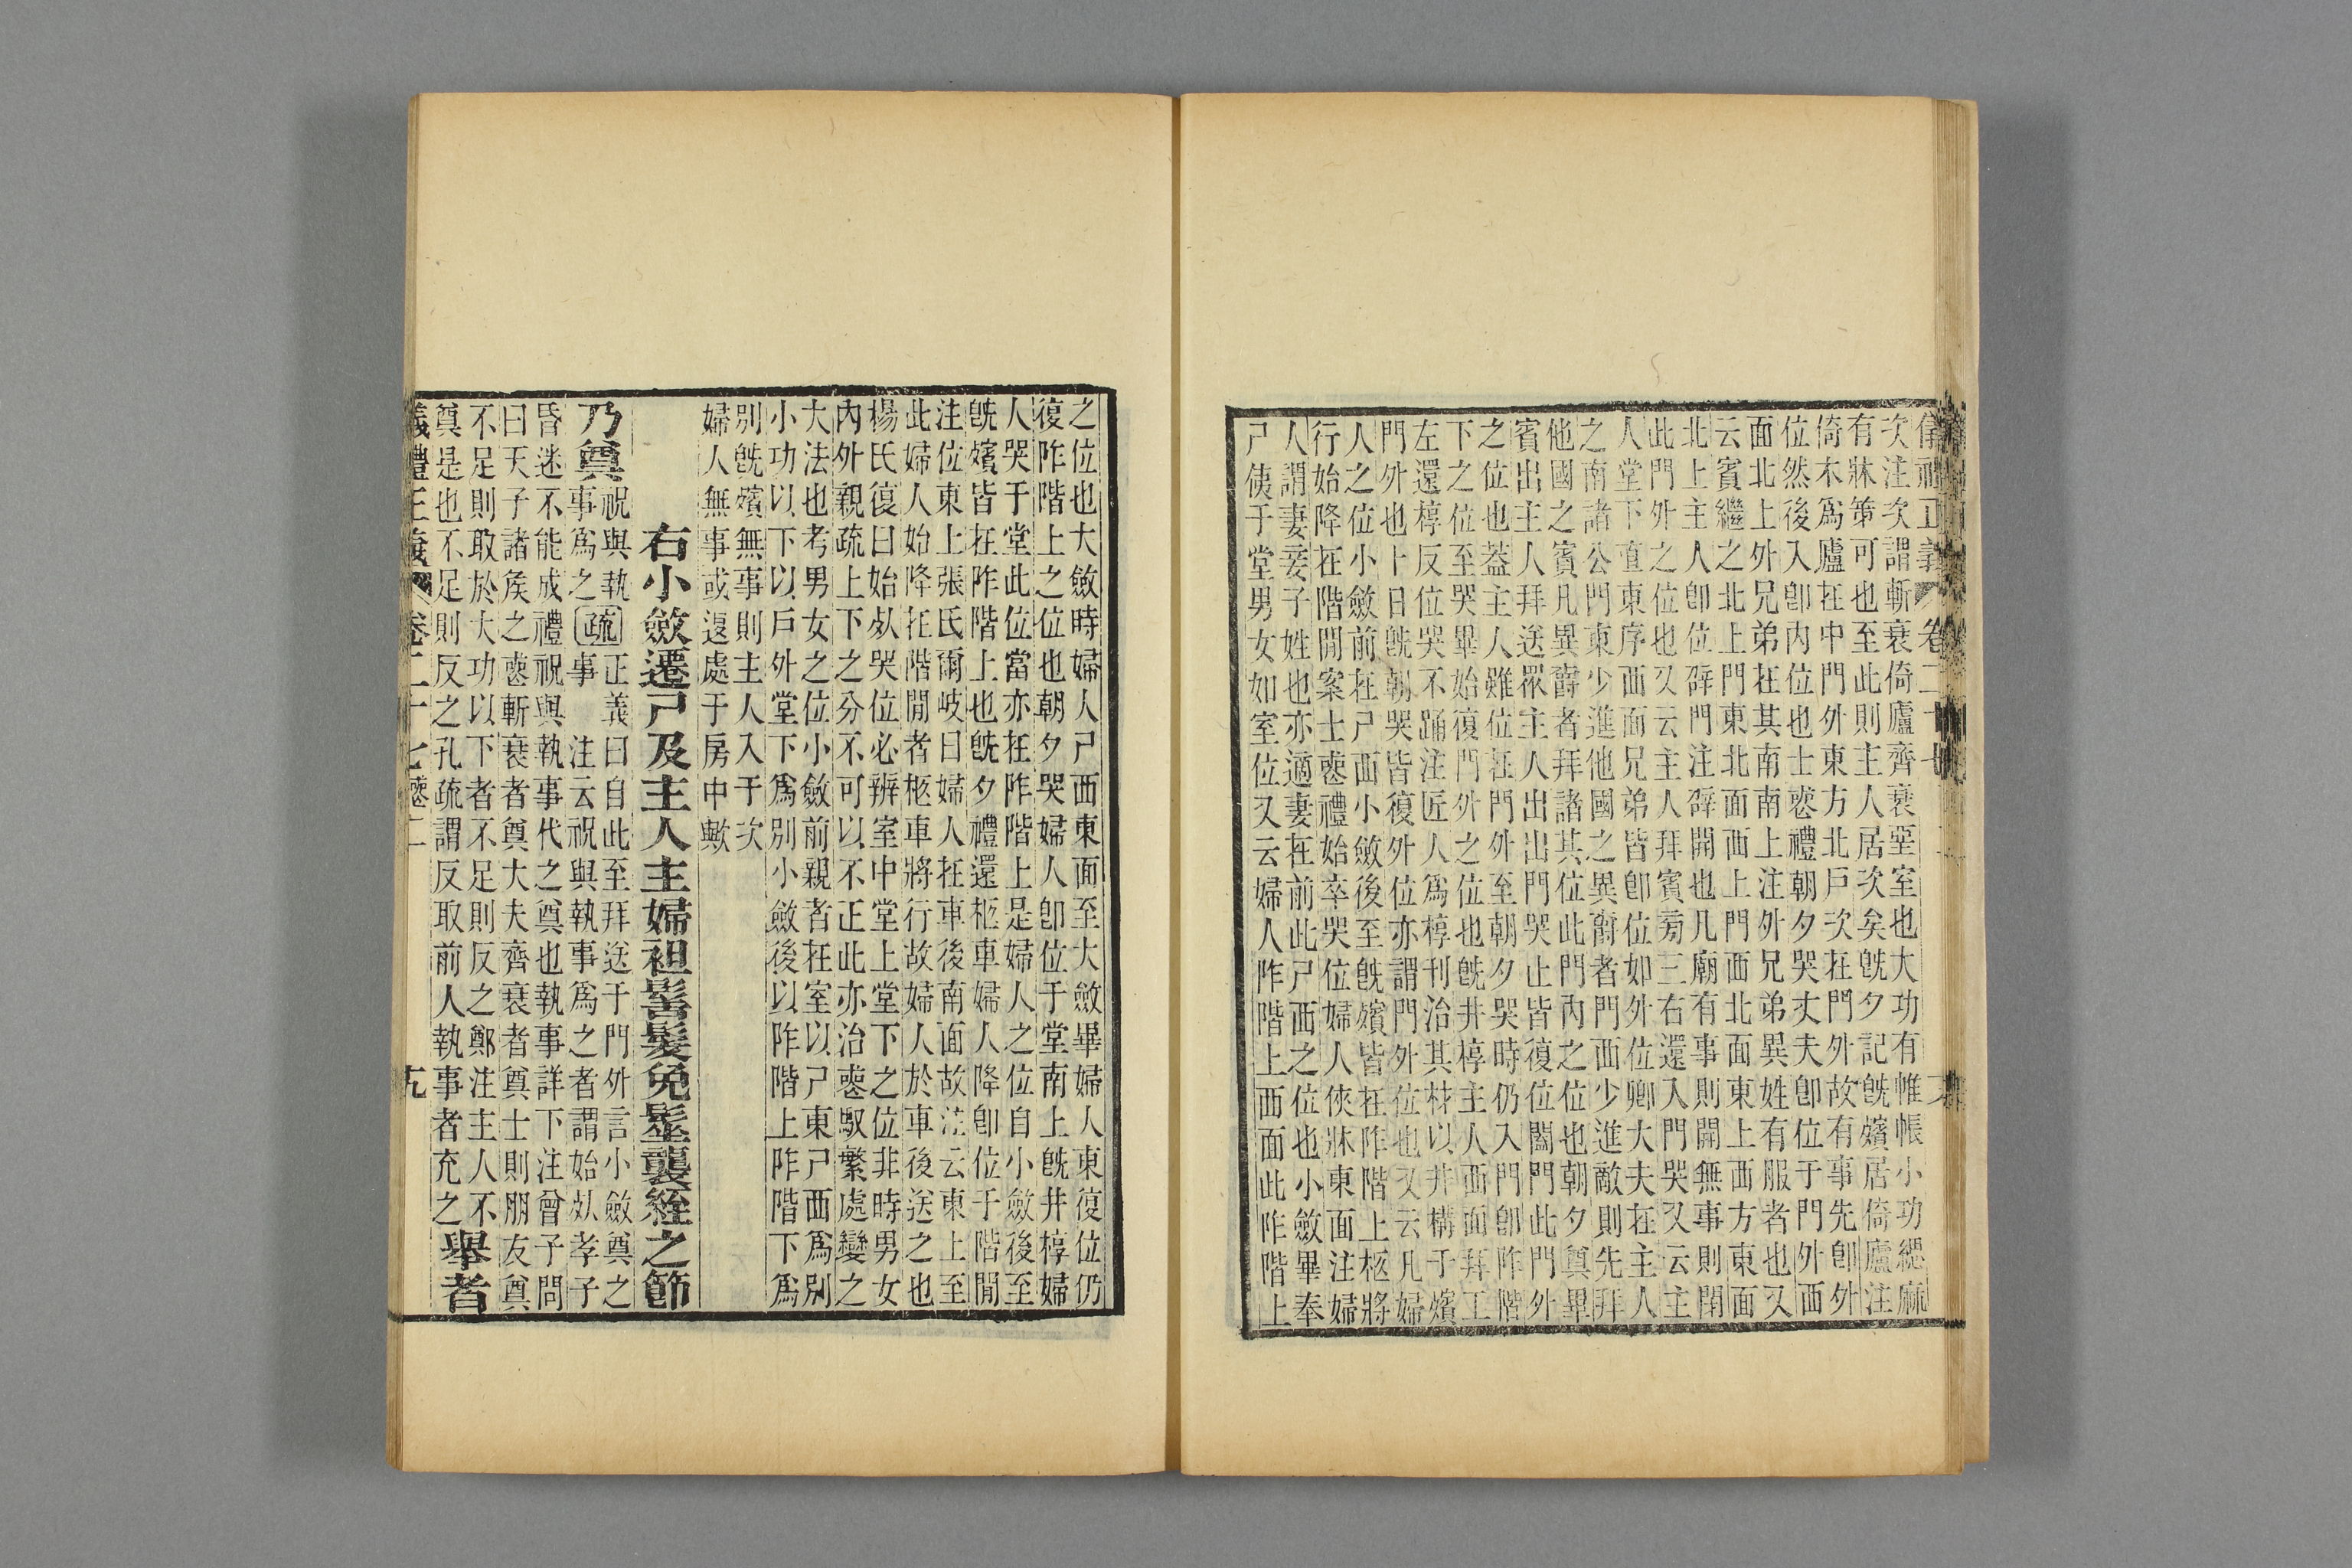 次注次謂斬衰倚廬齊衰堊室也大功有帷帳小功緦麻
有牀第可也至此則主人居次矣旣夕記旣殯居倚廬注
倚木爲廬在中門外東方北戶次在門外故有事先卽外
位然後入卽內位也士喪禮朝夕哭丈夫卽位于門外西
面北上外兄弟在其南南上注外兄弟異姓有服者也又
云賓繼之北上門東北面西上門西北面東上西方東面
北上主人卽位辟門注辟開也凡廟有事則開無事則閉
此門外之位也又云主人拜賓旁三右還入門哭又云主
人堂下直東序西面兄弟皆卽位如外位卿大夫在主人
之南諸公門東少進他國之異爵者門西少進敵則先拜
他國之賓凡異爵者拜諸其位此門內之位也朝夕奠畢
賓出主人拜送眾主人出出門哭止皆復位闔門此門外
之位也蓋主人雖位在門外至朝夕哭時仍入門卽阼階
下之位至哭畢始復門外之位也旣井椁主人西面拜工
左還椁反位哭不踊注匠人爲椁刊治其材以井構于殯
門外也卜日旣朝哭皆復外位亦謂門外位也又云凡婦
人之位小斂前在尸西小斂後至旣殯皆在阼階上柩將
行始降在階閒案士喪禮始卒哭位婦人俠牀東面注婦
人謂妻妾子姓也亦適妻在前此尸西之位也小斂畢奉
尸侇于堂男女如室位又云婦人阼階上西面此阼階上
之位也大斂時婦人尸西東面至大斂畢婦人東復位仍
復阼階上之位也朝夕哭婦人卽位于堂南上旣井椁婦
人哭于堂此位當亦在阼階上是婦人之位自小斂後至
旣殯皆在阼階上也旣夕禮還柩車婦人降卽位于階閒
注位東上張氏爾岐曰婦人在車後南面故注云東上至
此婦人始降在階閒者柩車將行故婦人於車後送之也
楊氏復曰始死哭位必辨室中堂上堂下之位非時男女
內外親疏上下之分不可以不正此亦治喪馭繁處變之
大法也考男女之位小斂前親者在室以尸東尸西爲別
小功以下以戶外堂下爲別小斂後以阼階上阼階下爲
別旣殯無事則主人入于次
婦人無事或退處于房中歟
右小斂遷尸及主人主婦袒髺髮免髽襲絰之節
乃奠
祝與執
事爲之
疏
正義曰自此至拜送于門外言小斂奠之
事 注云祝與執事爲之者謂始死孝子
昏迷不能成禮祝與執事代之奠也執事詳下注曾子問
曰天子諸矦之喪斬衰者奠大夫齊衰者奠士則朋友奠
不足則取於大功以下者不足則反之鄭注主人不
奠是也不足則反之孔疏謂反取前人執事者充之
舉者
儀禮正義 卷二十七喪二